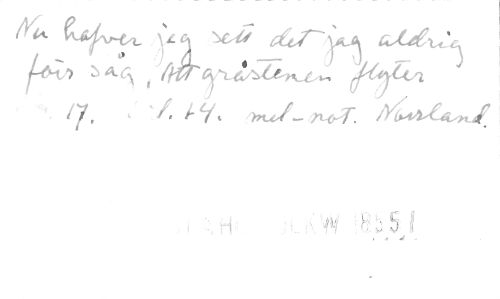 Nu hafver jag sett det jag aldrig
förr såg, Att gråstenen flyter
17. 14. mel-not. Norrland.
18551